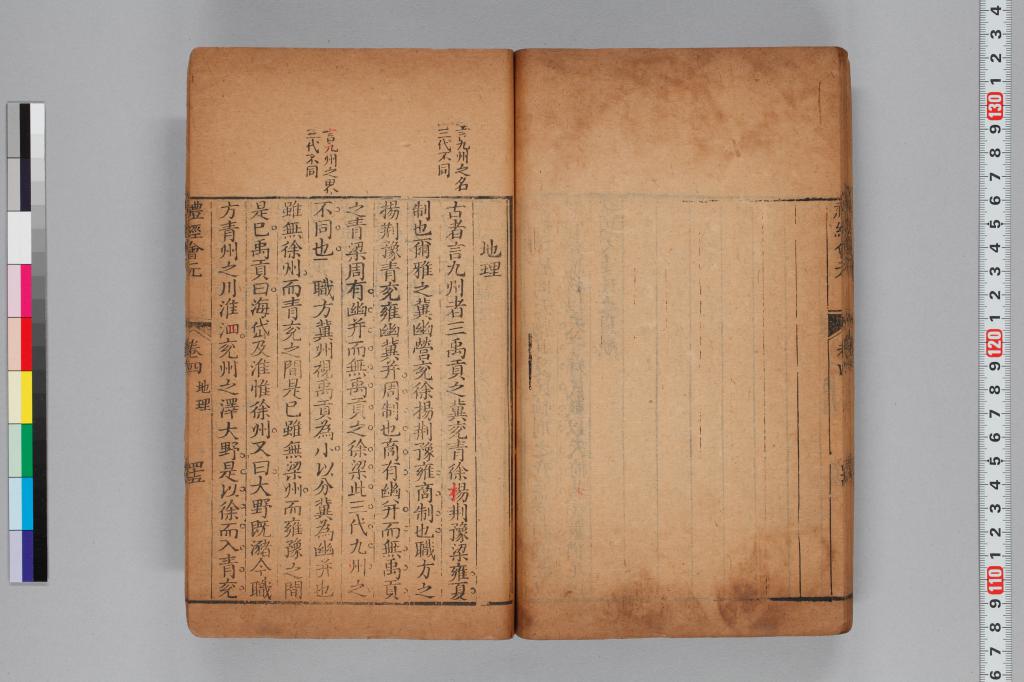 地理
言九州之名
三代不同
古者言九州者三禹貢之冀兖青徐揚荆豫梁雍夏
制也爾雅之冀幽營兖徐揚荆豫雍商制也職方之
揚荆豫青兖雍幽冀并周制也商有幽并而無禹貢
之青梁周有幽并而無禹貢之徐梁此三代九州之
言九州之界
三代不同
不同也 職方冀州視禹貢為小以分冀為幽并也
雖無徐州而青兖之間是已雖無梁州而雍豫之間
是已禹貢曰海岱及淮惟徐州又曰大野既瀦今職
方青州之川淮泗兖州之澤大野是以徐而入青兖
禮經會元
卷四
地理